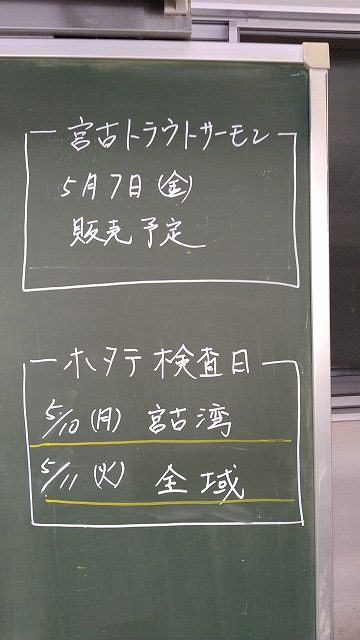 宮古トラウトサーモン
5月7日(金)
販売予定
ホタテ検査日
5/10(月) 宮古湾
5/11(火) 全域